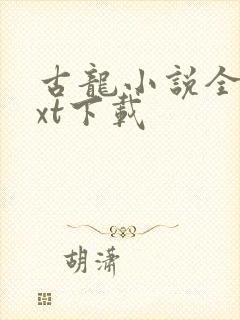 古龍小説全
xt下載
胡瀟